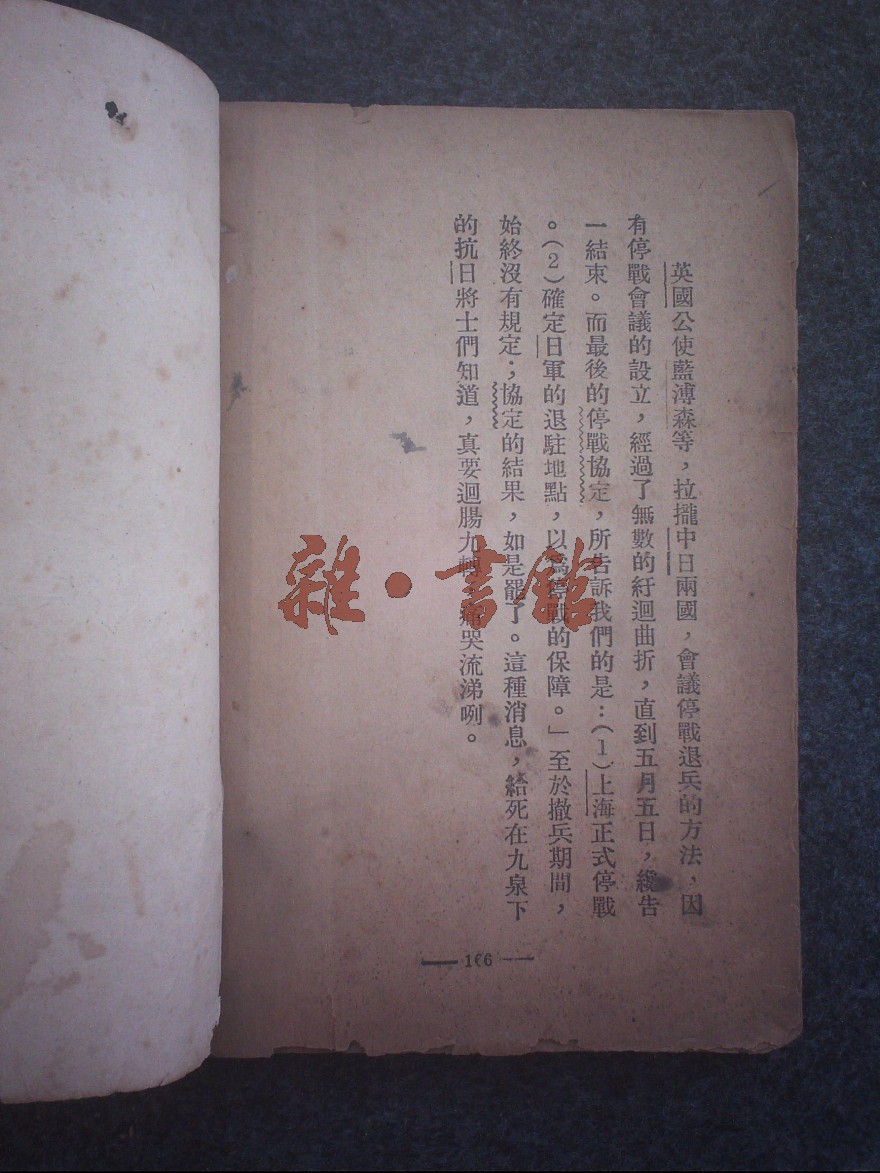 英國公使藍溥森等，拉攏中日兩國，會議停戰退兵的方法，因
有停戰會議的設立，經過了無數的紆迴曲折，直到五月五日，纔告
一結束。而最後的停戰協定，所告訴我們的是：(1)上海正式停戰
。(2)確定日軍的退駐地點，以爲停戰的保障。」至於撤兵期間，
始終沒有規定；協定的結果，如是罷了。這種消息，給死在九泉下
的抗日將士們知道，真要迴腸九轉，痛哭流涕咧。
— 166 —
雜·書館